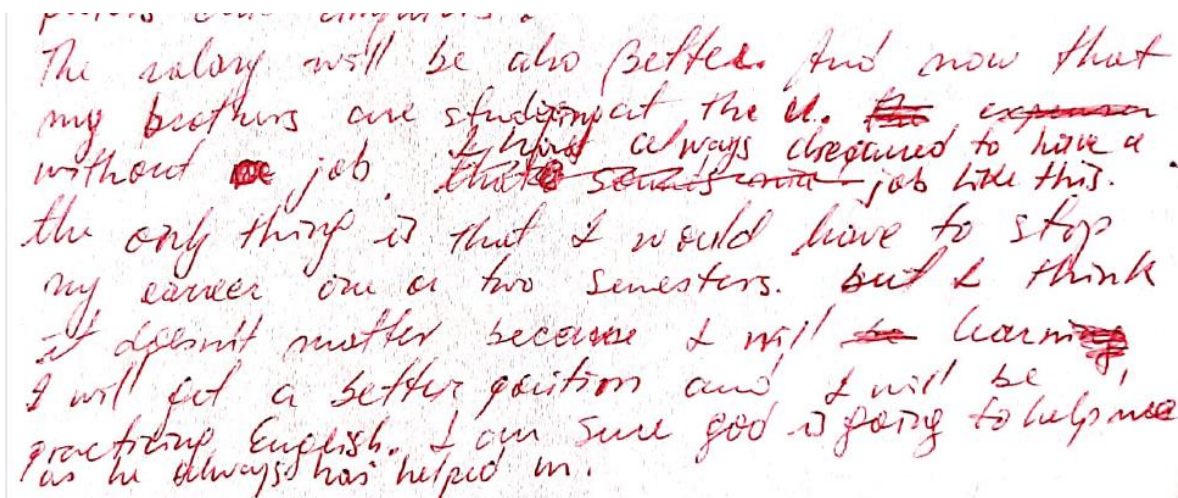 The salary will be also better. And now that
my brothers are studying at the U.
without job. I have always dreamed to have a
job like this.
the only thing is that I would have to stop
my career one or two semesters. but I think
it doesn't matter because I will learn,
I will get a better position and I will be
practicing English. I am sure god is going to help me
as he always has helped m.